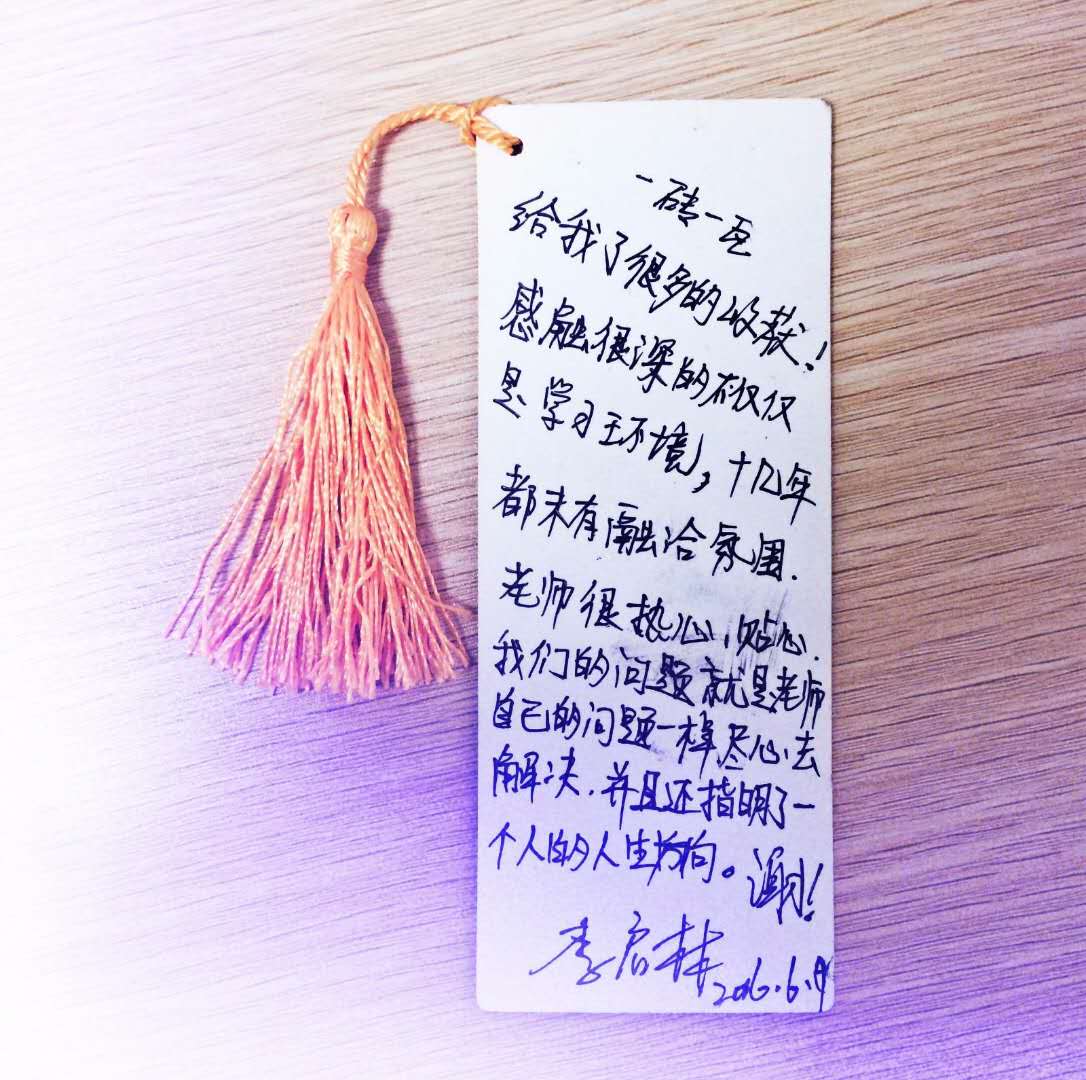 一砖一瓦
给我了很多的收获！
感触很深的不仅仅
是学习环境，十几年
都未有融洽氛围.
老师很热心、贴心.
我们的问题就是老师
自己的问题一样尽心去
解决.并且还指明了一
个人的人生方向。谢谢！
李启林
2016.6.